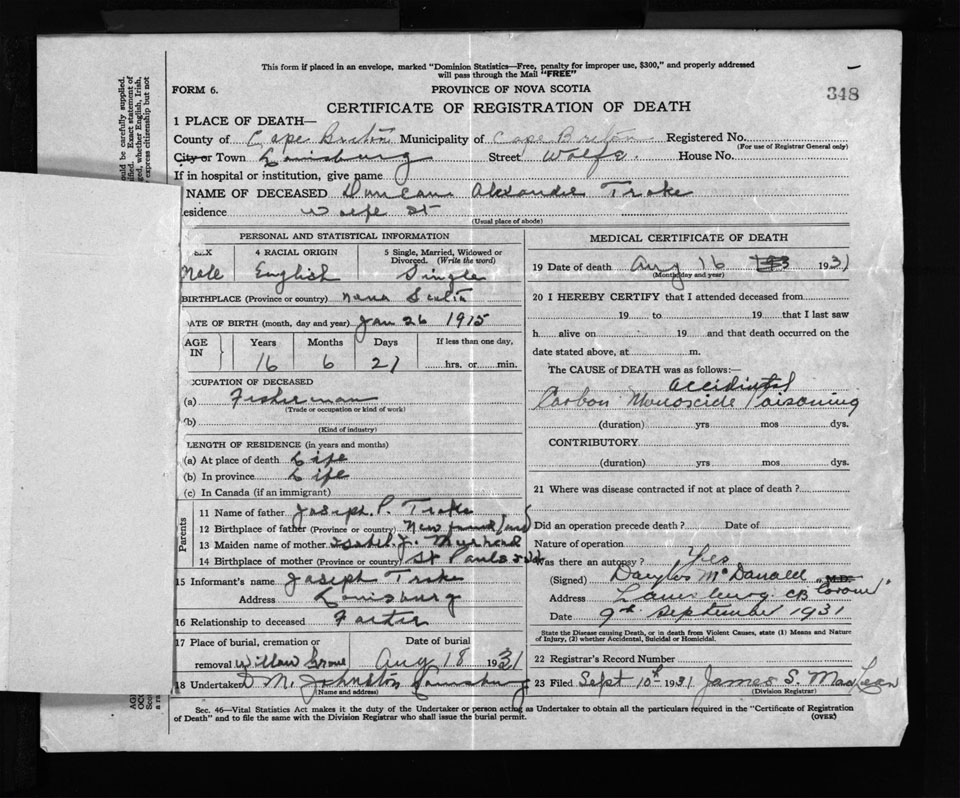 This form if placed in an envelope, marked "Dominion Statistics—Free, penalty for improper use, $300," and properly addressed
will pass through the Mail "FREE"
FORM 6.
PROVINCE OF NOVA SCOTIA
348
CERTIFICATE OF REGISTRATION OF DEATH
1 PLACE OF DEATH—
County of Cape Breton Municipality of Cape Breton Registered No.
(For use of Registrar General only)
City or Town Louisburg Street Wolfe. House No.
If in hospital or institution, give name
NAME OF DECEASED Duncan Alexander Troke
esidence Wolfe St
(Usual place of abode)
PERSONAL AND STATISTICAL INFORMATION
SEX 4 RACIAL ORIGIN 5 Single, Married, Widowed or
Divorced. (Write the word)
Male English Single
BIRTHPLACE (Province or country) Nova Scotia
DATE OF BIRTH (month, day and year) Jan 26 1915
AGE IN Years Months Days If less than one day,
16 6 21 hrs. or min.
OCCUPATION OF DECEASED
(a) Fisherman
(Trade or occupation or kind of work)
(b)
(Kind of industry)
LENGTH OF RESIDENCE (in years and months)
(a) At place of death Life
(b) In province Life
(c) In Canada (if an immigrant)
Parents
11 Name of father Joseph. P. Troke
12 Birthplace of father (Province or country) Newfoundland
13 Maiden name of mother Isabel. J.
14 Birthplace of mother (Province or country) St Pauls
15 Informant's name Joseph Troke
Address Louisburg
16 Relationship to deceased Father
17 Place of burial, cremation or Date of burial
removal Willow Grove Aug 18 1931
18 Undertaker D M. Johnston Louisburg
(Name and address)
MEDICAL CERTIFICATE OF DEATH
19 Date of death Aug 16 1931
(Month, day and year)
20 I HEREBY CERTIFY that I attended deceased from
19 to 19 that I last saw
h alive on 19 and that death occurred on the
date stated above, at m.
The CAUSE of DEATH was as follows:—
accidental
Carbon Monoxide Poisoning
(duration) yrs mos dys.
CONTRIBUTORY
(duration) yrs mos dys.
21 Where was disease contracted if not at place of death?
Did an operation precede death? Date of
Nature of operation
Was there an autopsy? Yes
(Signed) McDonald M.D.
Address Louisburg. CB
Date 9th September 1931
State the Disease causing Death, or in death from Violent Causes, state (1) Means and Nature
of Injury, (2) whether Accidental, Suicidal or Homicidal.
22 Registrar's Record Number
23 Filed Sept 10th 1931 James S. MacLean
(Division Registrar)
Sec. 46—Vital Statistics Act makes it the duty of the Undertaker or person acting as Undertaker to obtain all the particulars required in the "Certificate of Registration
of Death" and to file the same with the Division Registrar who shall issue the burial permit.
(OVER)